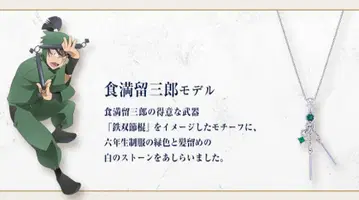 食満留三郎モデル
食満留三郎の得意な武器
「鉄双節棍」をイメージしたモチーフに、
六年生制服の緑色と髪留めの
白のストーンをあしらいました。